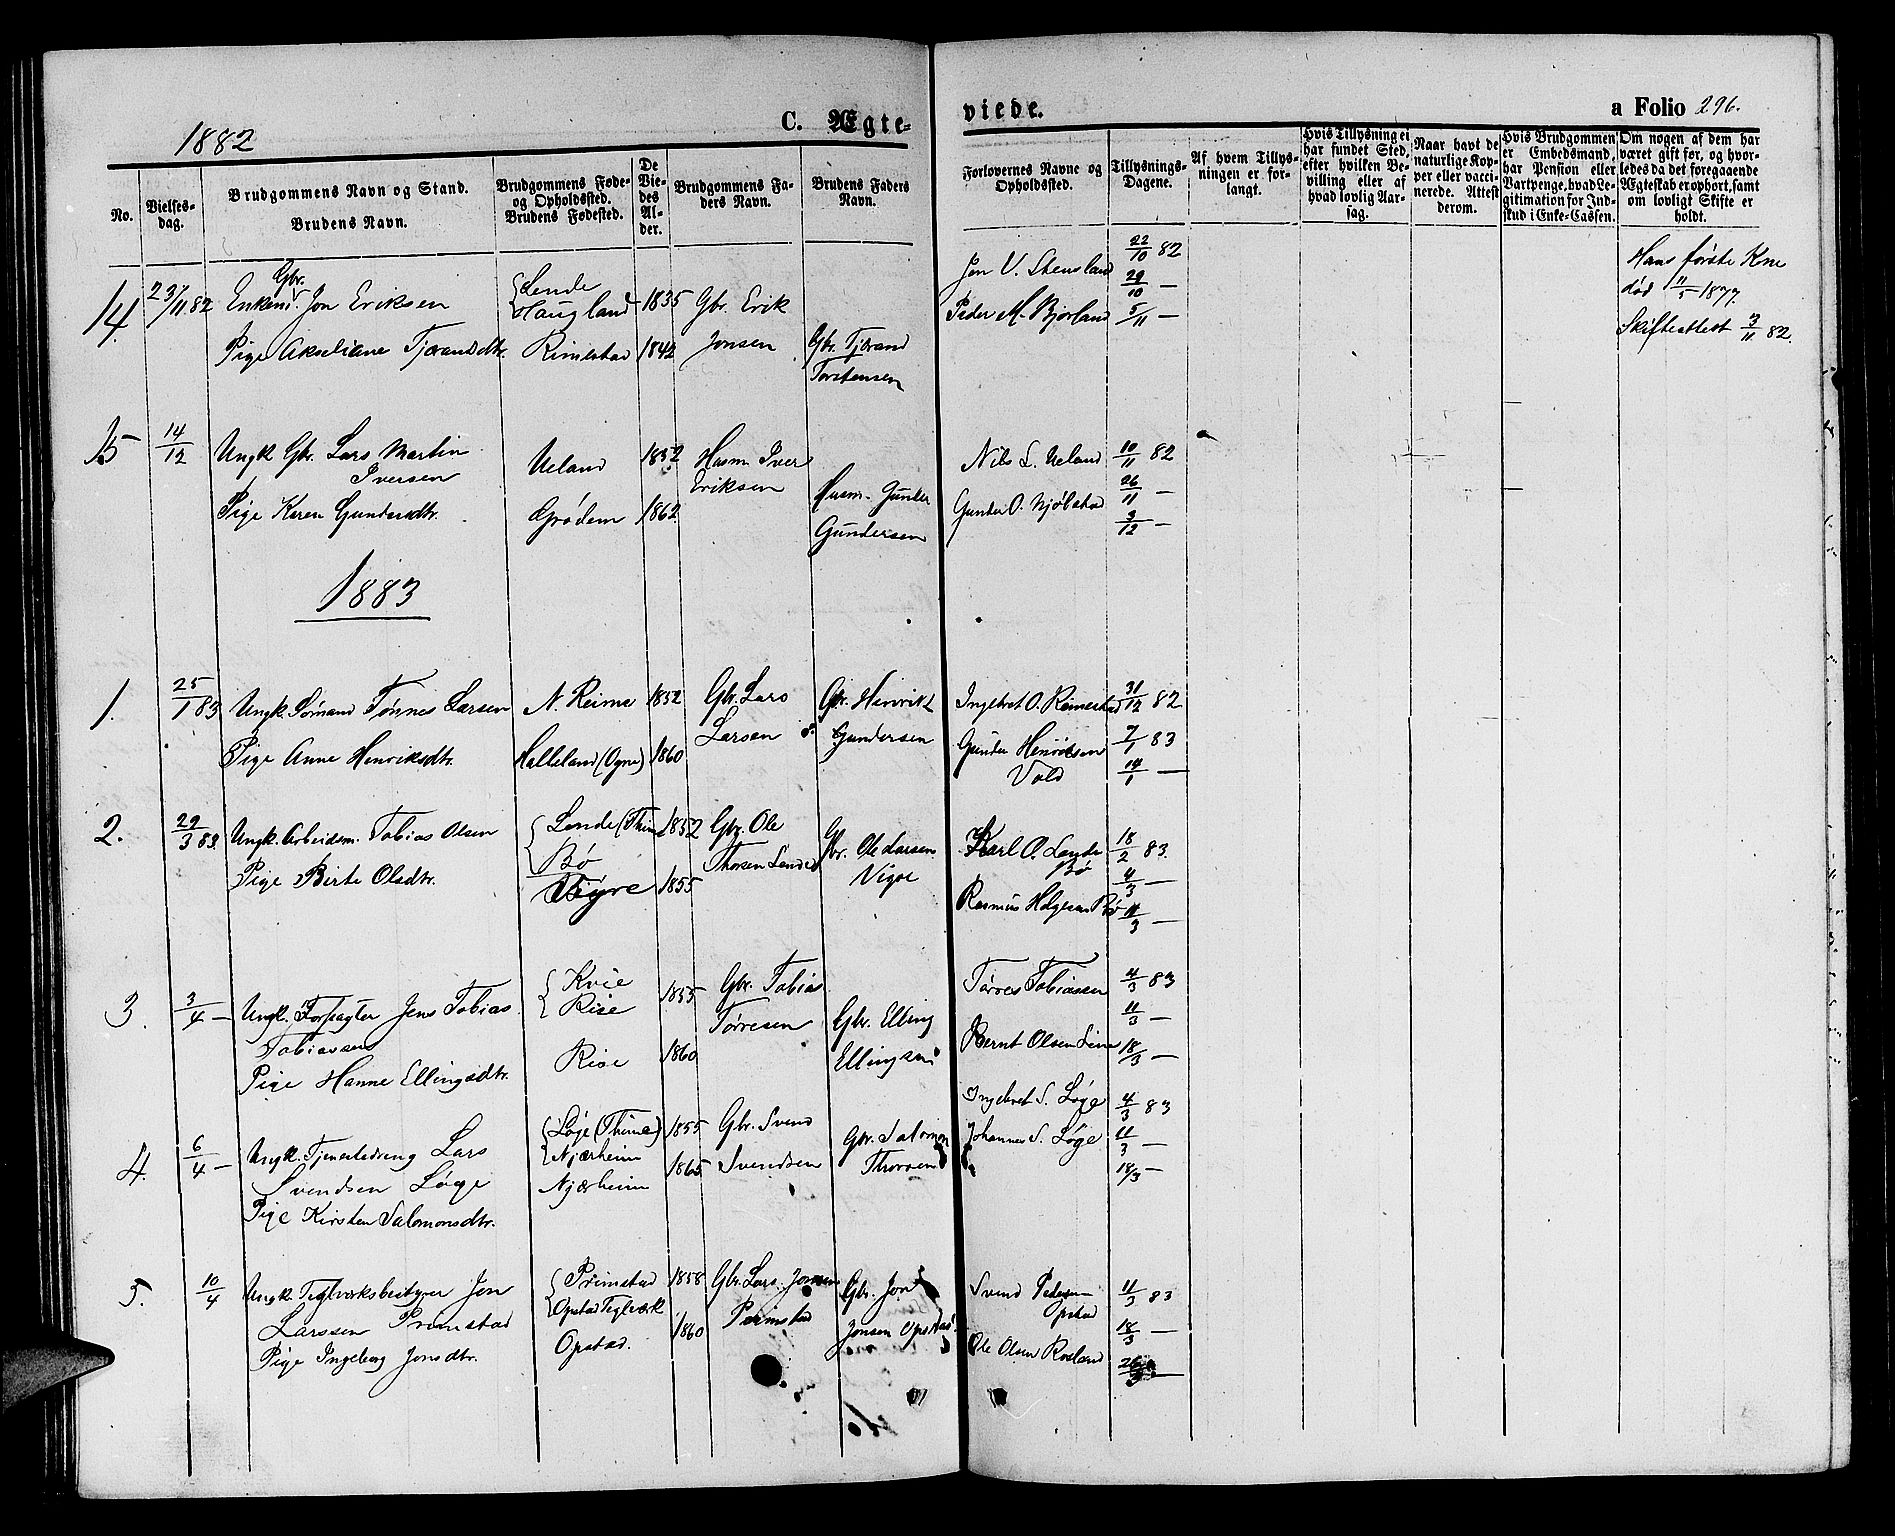 1882
C. Ægte-
viede.
a Folio 296.
No.
Vielses-
dag.
Brudgommens Navn og Stand.
Brudens Navn.
Brudgommens Føde-
og Opholdssted.
Brudens Fødested.
De
Vie-
des
Al-
der.
Brudgommens Fa-
ders Navn.
Brudens Faders
Navn.
Forlovernes Navne og
Opholdssted.
Tillysnings-
Dagene.
Af hvem Tillys-
ningen er for-
langt.
Hvis Tillysning ei
har fundet Sted,
efter hvilken Be-
villing eller af
hvad lovlig Aar-
sag.
Naar havt de
naturlige Kop-
per eller vacci-
nerede. Attest
derom.
Hvis Brudgommen
er Embedsmand,
har Pension eller
Vartpenge, hvad Le-
gitimation for Ind-
skud i Enke-Cassen.
Om nogen af dem har
været gift før, og hvor-
ledes da det foregaaende
Ægteskab er ophørt, samt
om lovligt Skifte er
holdt.
14. 23/11 82 Enkem. Gbr. Jon Eriksen
Pige Akseliane Tjerandsdtr.
Lende
Haugland
Rimestad
1835
1842
Gbr. Erik
Jonsen
Gbr. Tjerand
Torstensen
Jon V. Stensland
Peder M. Bjorland
22/10 82
29/10 —
5/11 —
Hans første Kone
død 11/5 1877.
Skifteattest 3/11 82.
15 14/12 Ungk. Gbr. Lars Martin
Iversen
Pige Karen Gundersdtr.
Ueland
Grødem
1852
1862
Husm. Iver
Eriksen
Husm. Gunder
Gundersen
Nils L. Ueland
Gunder O. Njølstad
19/11 82
26/11 —
3/12 —
1883
1. 25/1 83 Ungk. Sømand Tønnes Larsen
Pige Anne Henriksdtr.
N. Reime
Halleland (Ogne)
1852
1860
Gbr. Lars
Larsen
Gbr. Henrik
Gundersen
Ingebret O. Rimestad
Gunder Henriksen
Vold
31/12 82
7/1 83
14/1 —
2. 29/3 83 Ungk. Arbeidsm. Tobias Olsen
Pige Birte Olsdtr.
Lende (Thime
Bø
Vigre
1852
1855
Gbr. Ole
Thorsen Lende
Gbr. Ole Larsen
Vigre
Karl O. Lende
Bø
Rasmus Helgesen Bø
18/2 83.
4/3 —
11/3 —
3. 3/4 — Ungk. Forpagter Jens Tobias
Tobiassen
Pige Hanne Ellingsdtr.
Kvie
Rise
Rise
1855
1860
Gbr. Tobias
Tørresen
Gbr. Elling
Ellingsen
Tørres Tobiassen
Bernt Olsen
4/3 83
11/3 —
18/3 —
4. 6/4 — Ungk. Tjenestedreng Lars
Svendsen Løge
Pige Kirsten Salomonsdtr.
Løge (Thime)
Njærheim
Njærheim
1855
1865
Gbr. Svend
Svendsen
Gbr. Salomon
Thorsen
Ingebret S. Løge
Johannes S. Løge
4/3 83
11/3 —
18/3 —
5. 10/4 Ungk. Teglværksbestyrer Jon
Larssen Primstad
Pige Ingeborg Jonsdtr.
Primstad
Opstad Teglværk
Opstad.
1858
1860
Gbr. Lars Jonsen
Primstad
Gbr. Jon
Jonsen Opstad
Svend Pedersen
Opstad
Ole Olsen Rosland
11/3 83
18/3 —